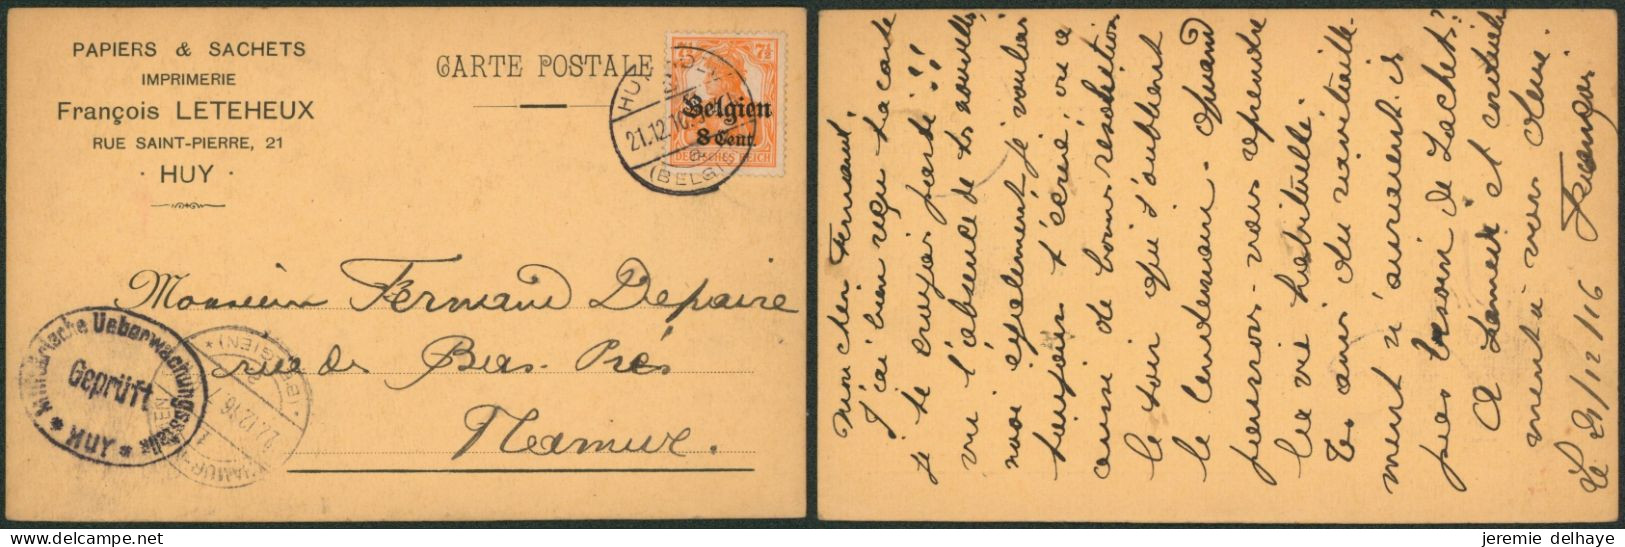 PAPIERS & SACHETS
IMPRIMERIE
François LETEHEUX
RUE SAINT-PIERRE, 21
· HUY ·
CARTE POSTALE
7½ 7½
Belgien
8 Cent.
DEUTSCHES REICH
HUY
21.12.16
(BELG
Monsieur Fernand Depaire
rue des Bas-Prés
Namur.
* Militärische Ueberwachungsstelle *
Geprüft
HUY
NAMUR
22.12.16.7
(BELGIEN) *
Mon cher Fernand,
J'ai bien reçu ta carte
je te croyais perdu !!!
vu l'absence de tes nouvelles
moi également je voulais
t'écrire, vu
aussi de bonnes résolution
le soir qui s'oublient
le lendemain. Quand
pensons-nous reprendre
la vie habituelle.
Tes amis du ravitaille-
ment n'auraient-ils
pas besoin de sachets?
A Lameir et
ment à vous deux.
François
Le 21/12/16
jeremie delhaye